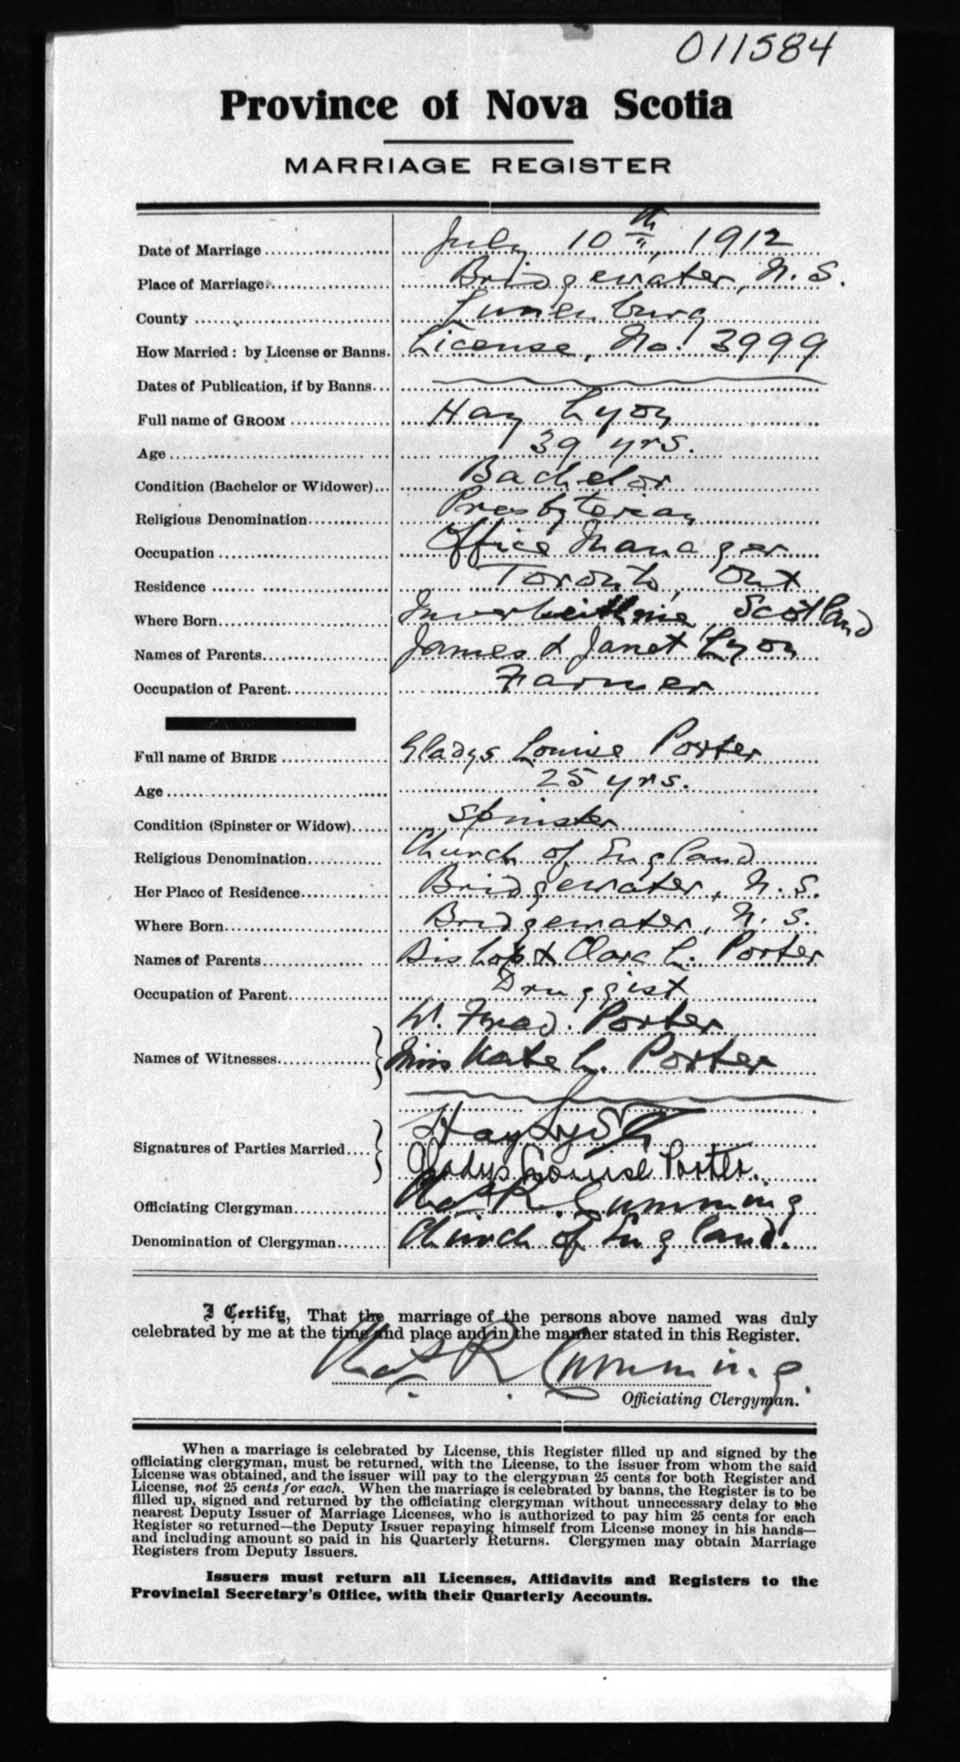 011584
Province of Nova Scotia
MARRIAGE REGISTER
Date of Marriage July 10th, 1912
Place of Marriage Bridgewater, N. S.
County Lunenburg
How Married: by License or Banns. License, No. 3999
Dates of Publication, if by Banns
Full name of GROOM Hay Lyon
Age 39 yrs.
Condition (Bachelor or Widower) Bachelor
Religious Denomination Presbyterian
Occupation Office Manager
Residence Toronto, Ont
Where Born Scotland
Names of Parents James & Janet Lyon
Occupation of Parent Farmer
Full name of BRIDE Gladys Louise Porter
Age 25 yrs.
Condition (Spinster or Widow) Spinster
Religious Denomination Church of England
Her Place of Residence Bridgewater, N. S.
Where Born Bridgewater, N. S.
Names of Parents Bishop & Clara L. Porter
Occupation of Parent Druggist
W. Fred. Porter
Names of Witnesses Miss Kate L. Porter
Hay Lyon
Signatures of Parties Married
Gladys Louise Porter.
Officiating Clergyman R. Cumming
Denomination of Clergyman Church of England.
I Certify, That the marriage of the persons above named was duly
celebrated by me at the time and place and in the manner stated in this Register.
R. Cumming.
Officiating Clergyman.
When a marriage is celebrated by License, this Register filled up and signed by the
officiating clergyman, must be returned, with the License, to the issuer from whom the said
License was obtained, and the issuer will pay to the clergyman 25 cents for both Register and
License, not 25 cents for each. When the marriage is celebrated by banns, the Register is to be
filled up, signed and returned by the officiating clergyman without unnecessary delay to the
nearest Deputy Issuer of Marriage Licenses, who is authorized to pay him 25 cents for each
Register so returned—the Deputy Issuer repaying himself from License money in his hands—
and including amount so paid in his Quarterly Returns. Clergymen may obtain Marriage
Registers from Deputy Issuers.
Issuers must return all Licenses, Affidavits and Registers to the
Provincial Secretary's Office, with their Quarterly Accounts.